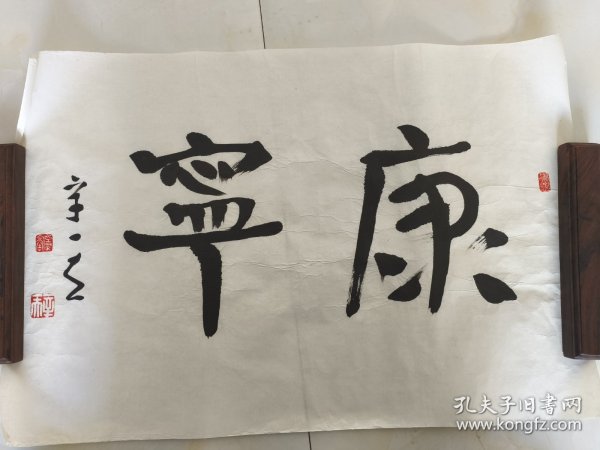 康寧
辛一夫
孔夫子旧书网
www.kongfz.com